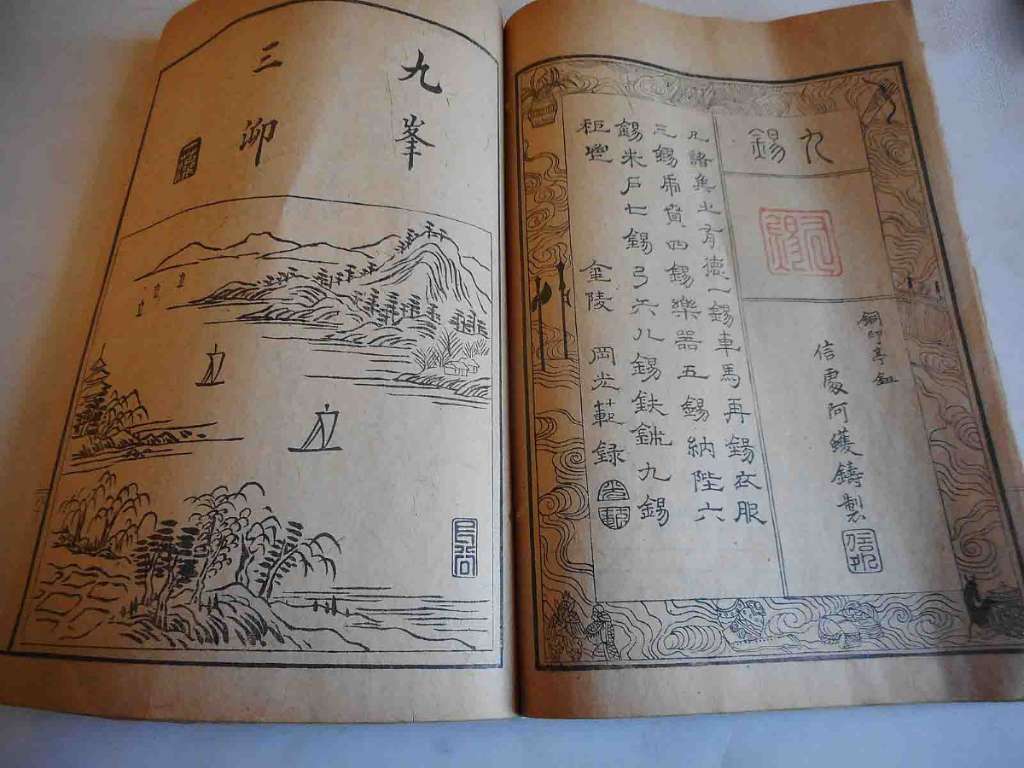 九錫
銅印亭鈕
阿鑊鑄製
凡諸侯之有德一錫車馬再錫衣服
三錫虎賁四錫樂器五錫納陛六
錫朱戶七錫弓矢八錫鈇鉞九錫
秬鬯
金陵 範錄
九峯
三泖